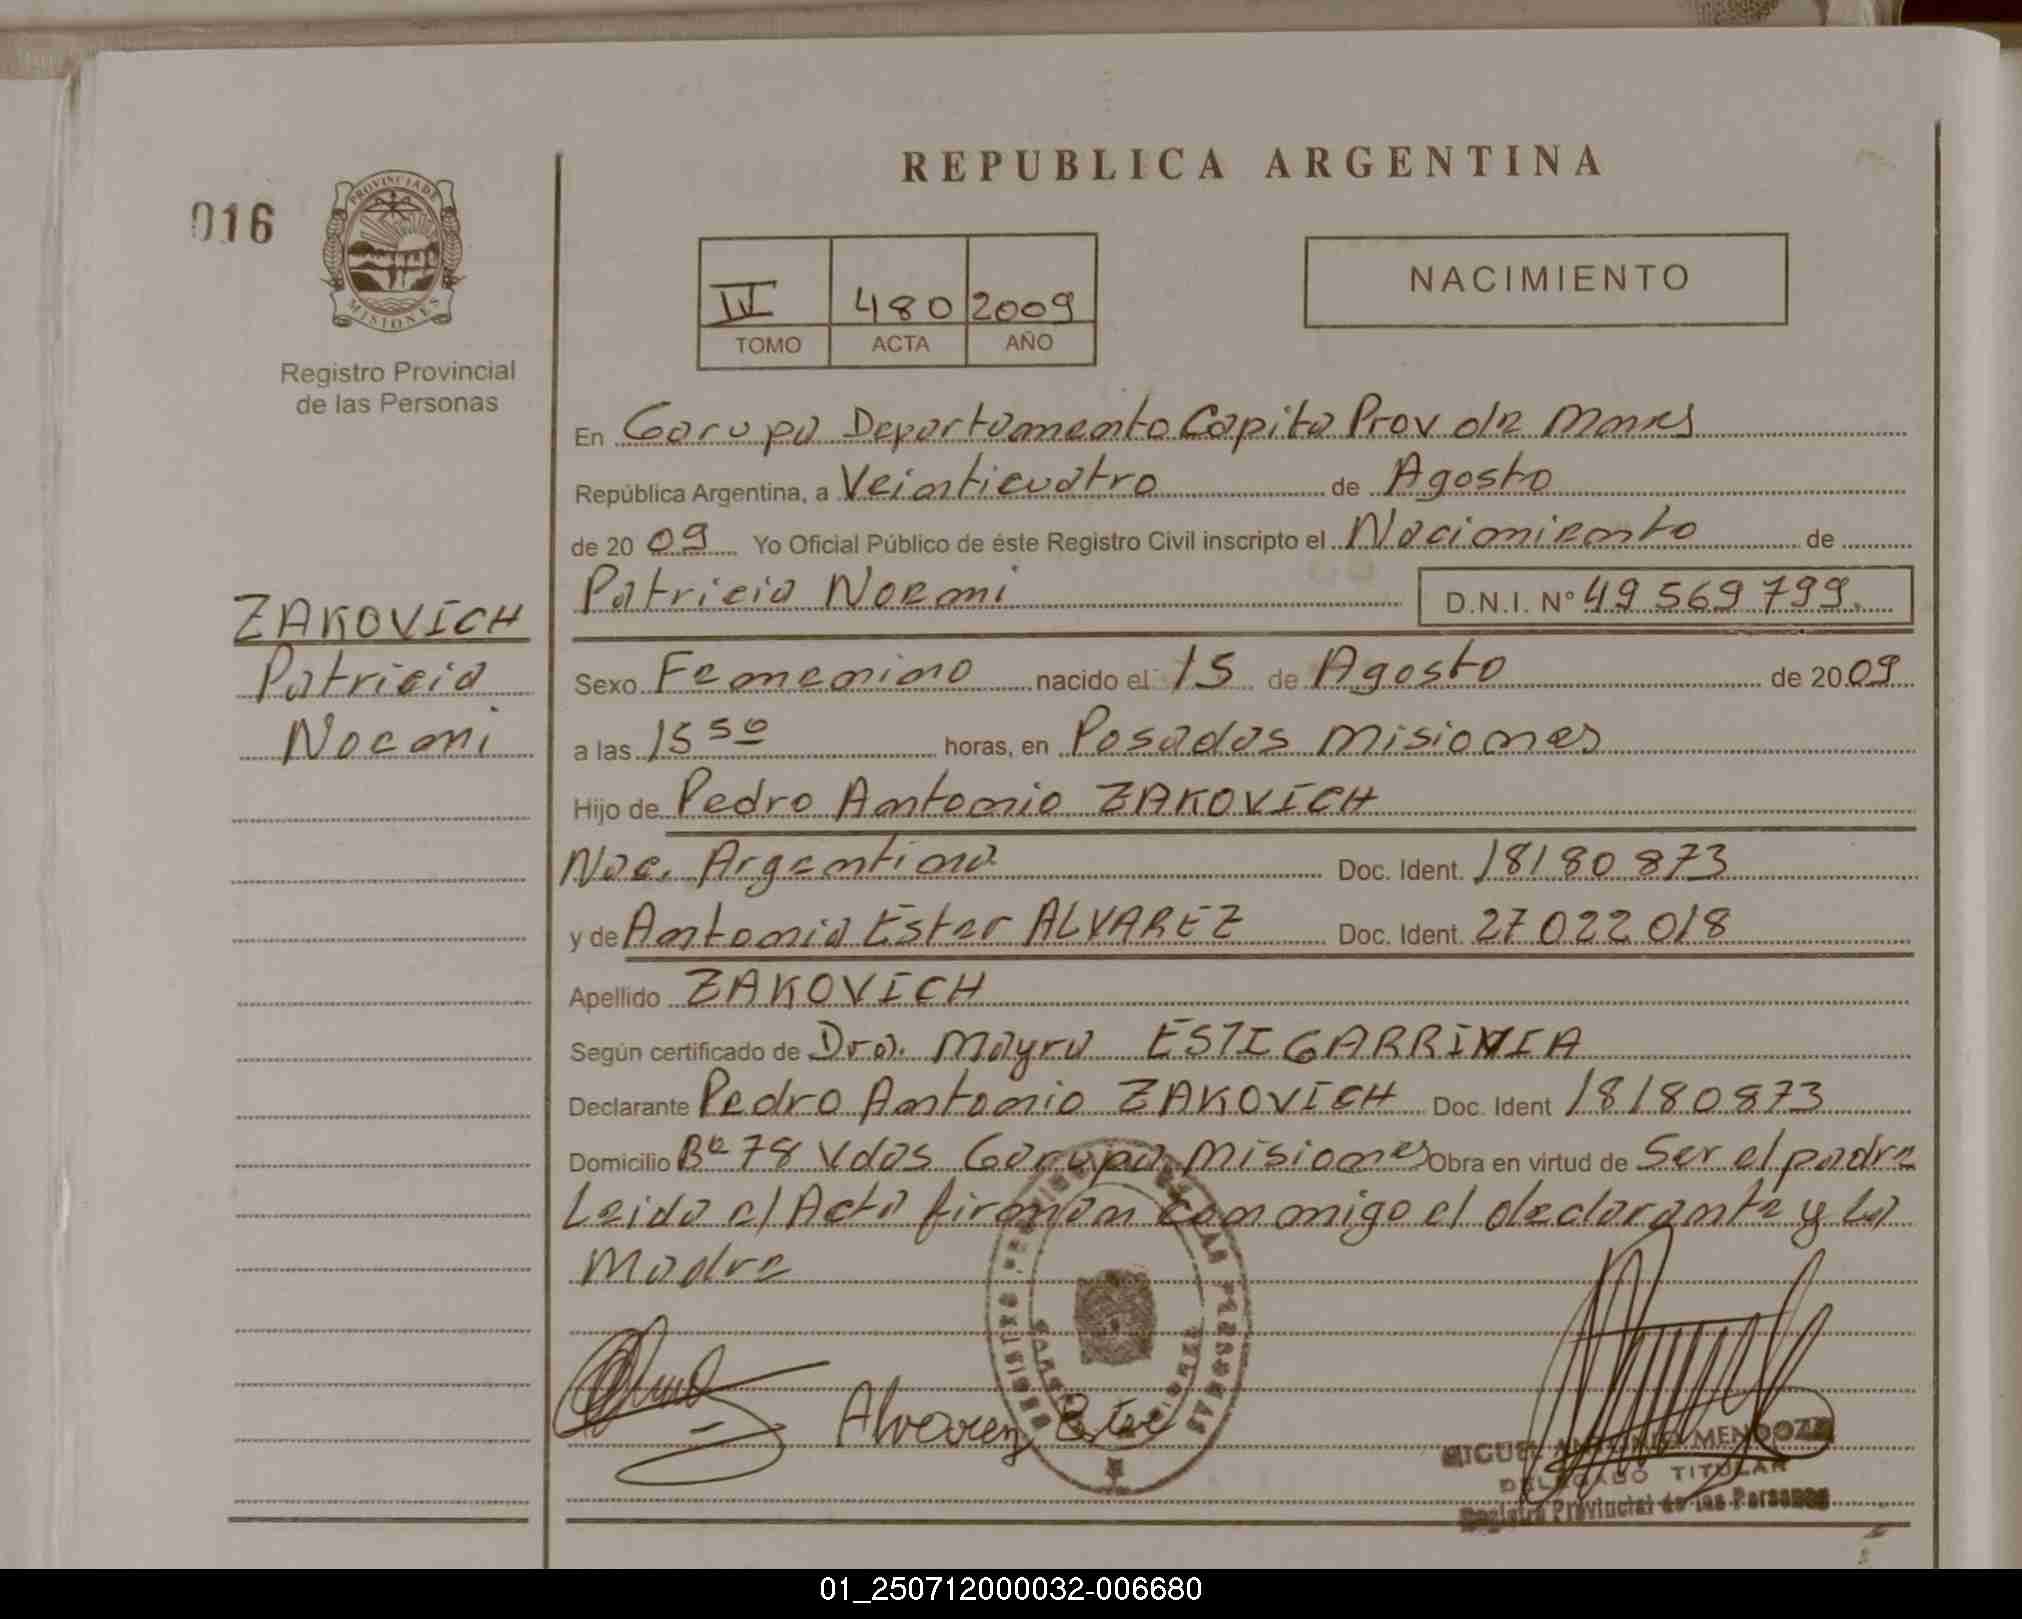 REPUBLICA ARGENTINA
016
PROVINCIA DE
MISIONES
Registro Provincial
de las Personas
NACIMIENTO
480 2009
TOMO ACTA AÑO
En Garupa Departamento Capita Prov de Mnes
República Argentina, a Veinticuatro de Agosto
de 20 09 Yo Oficial Público de éste Registro Civil inscripto el Nacimiento de
Patricia Noemi D.N.I. N° 49 569 799.
ZAKOVICH
Patricia
Noemi
Sexo Femenino nacido el 15 de Agosto de 20 09
a las 15 50 horas, en Posadas Misiones
Hijo de Pedro Antonio ZAKOVICH
Nac. Argentina Doc. Ident. 18180873
y de Antonia Ester ALVAREZ Doc. Ident. 27022018
Apellido ZAKOVICH
Según certificado de Dra. Mayra
Declarante Pedro Antonio ZAKOVICH Doc. Ident 18180873
Domicilio Bº 78 Vdas Garupa Misiones Obra en virtud de Ser el padre
Leida el Acta firman conmigo el declarante y La
Madre
Alvarez Ester
MIGUEL ANTONIO MENDOZA
DELEGADO TITULAR
Registro Provincial de las Personas
01_250712000032-006680